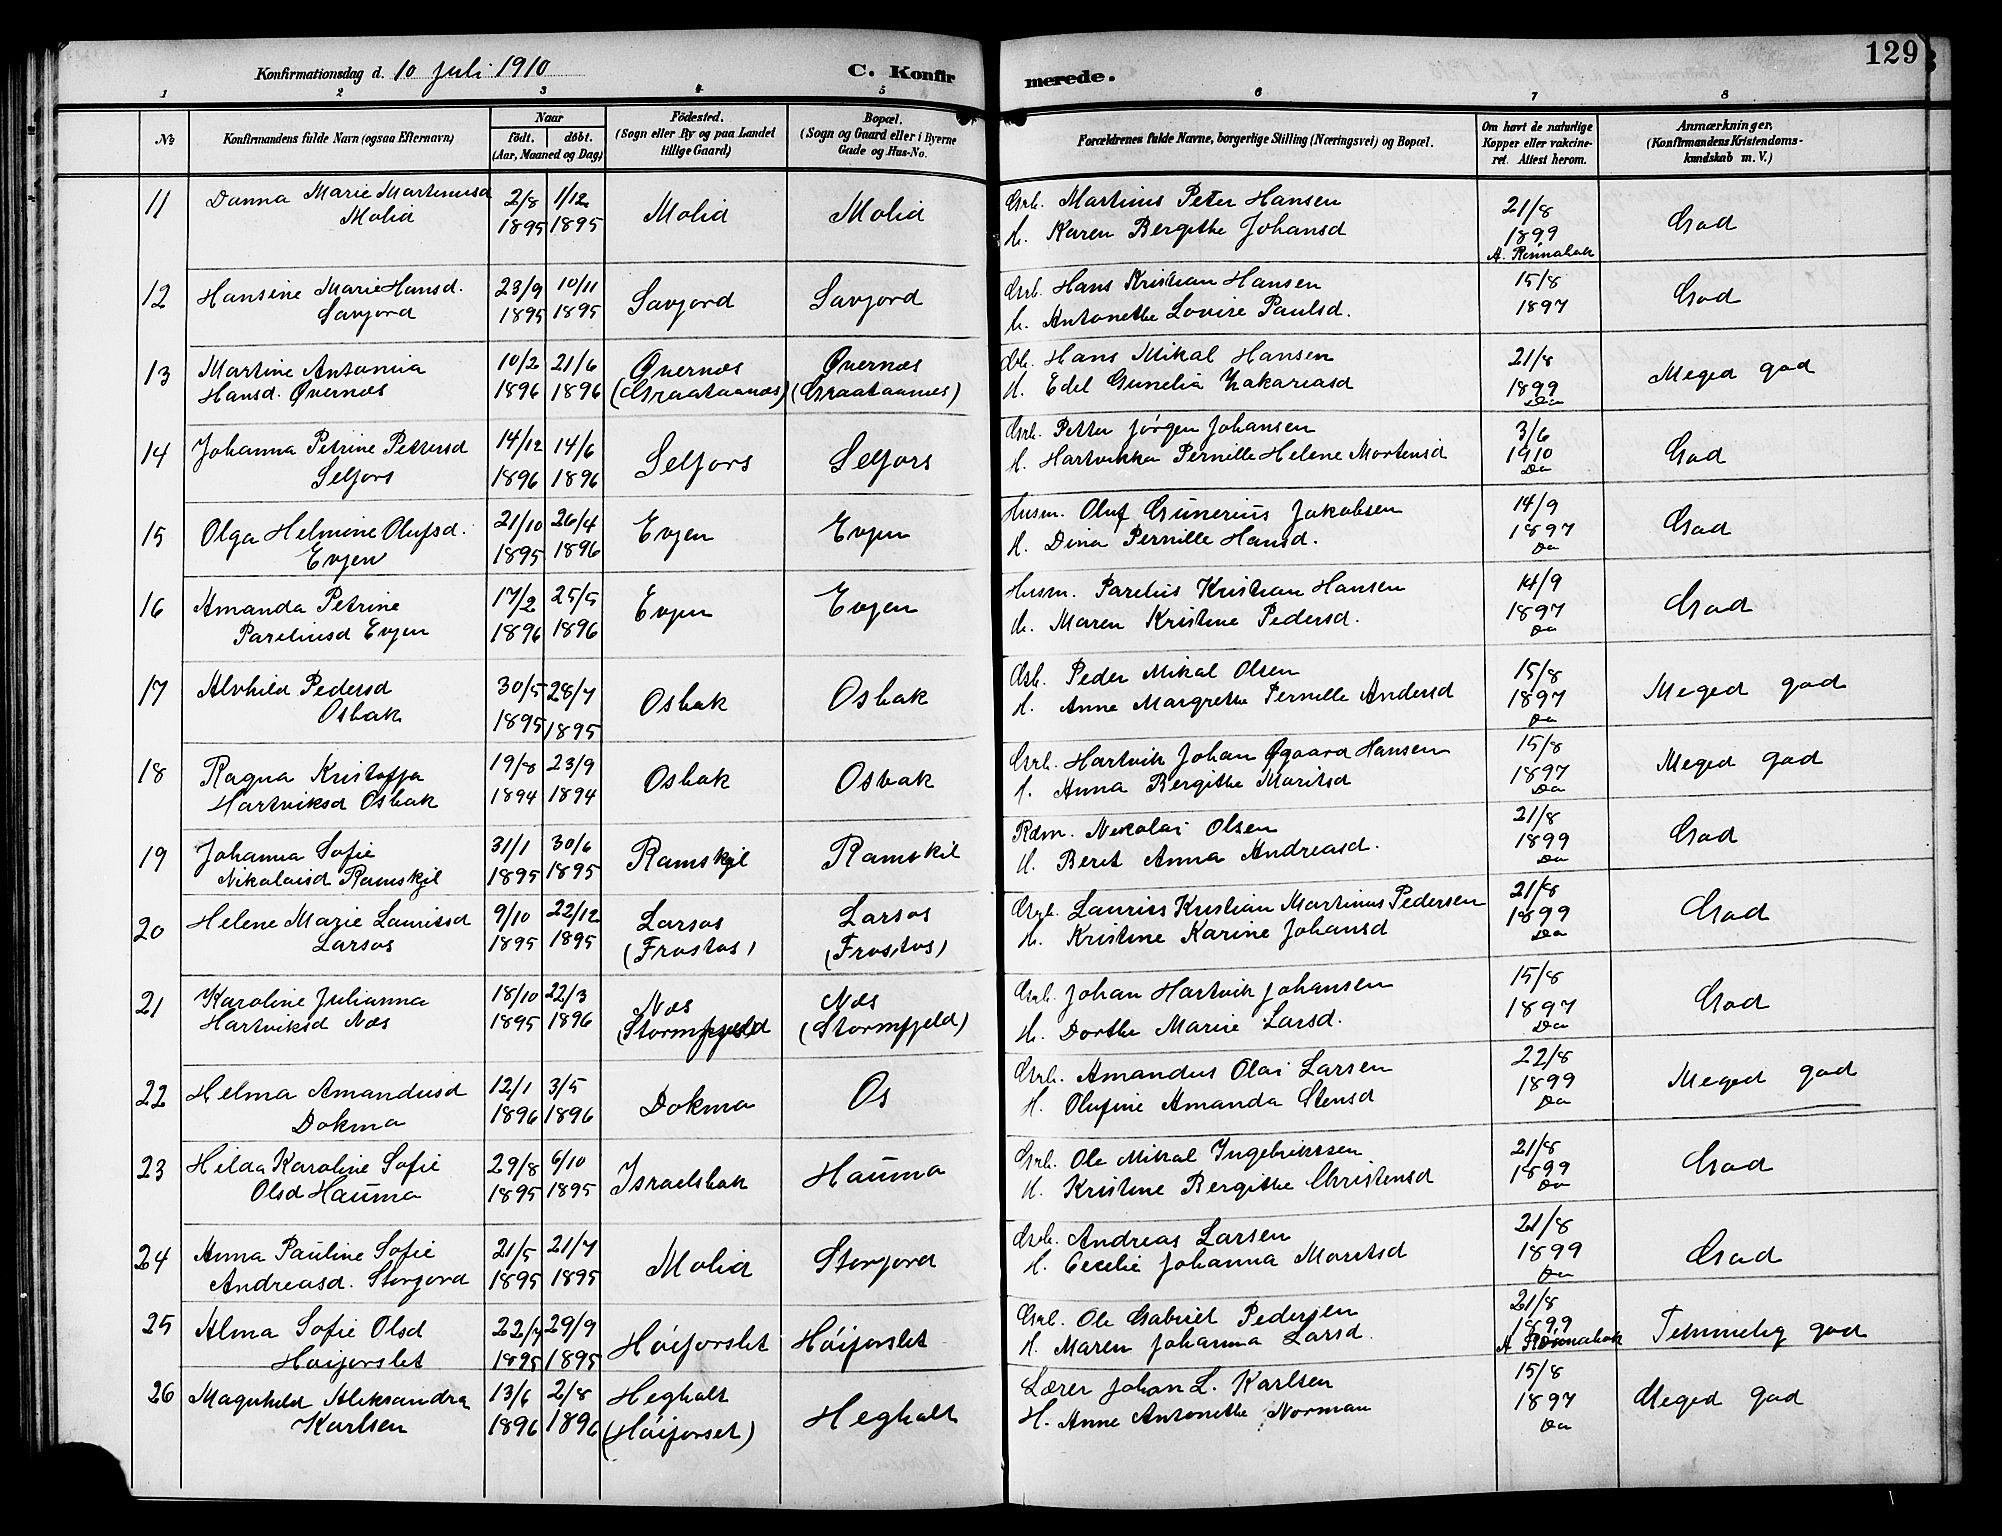 129
Konfirmationsdag d. 10 Juli 1910
C. Konfirmerede.
1 2 3 4 5 6 7 8
No
Konfirmandens fulde Navn (ogsaa Efternavn)
Naar
födt. döbt.
(Aar, Maaned og Dag)
Födested.
(Sogn eller By og paa Landet
tillige Gaard)
Bopæl.
(Sogn og Gaard eller i Byerne
Gade og Hus-No.
Forældrenes fulde Navne, borgerlige Stilling (Næringsvei) og Bopæl.
Om havt de naturlige
Kopper eller vakcineret. Attest herom.
Anmærkninger,
(Konfirmandens Kristendomskundskab m. V.)
11 Danna Marie Martinusd 2/8 1/12 Molid Molid Grb. Martinus Peter Hansen 21/8 God
Molid 1895 1895 H. Karen Bergithe Johansd 1899
12 Hansine Marie Hansd. 23/9 10/11 Savjord Savjord Grb. Hans Kristian Hansen 15/8 God
Savjord 1895 1895 H. Antonethe Lovise Paulsd. 1897
13 Martine Antonia 10/2 21/6 Øvernæs Øvernæs Grb. Hans Mikal Hansen 21/8 Meged god
Hansd. Øvernæs 1896 1896 (Graataanæs) (Graataanæs) H. Edel Gunelia Zakariasd 1899 Do
14 Johanna Petrine Pettersd 14/12 14/6 Selfors Selfors Grb. Petter Jørgen Johansen 3/6 God
Selfors 1896 1896 H. Hartvikka Pernille Helene Mortensd 1910 Do
15 Olga Helmine Olufsd. 21/10 26/4 Evjen Evjen Husm. Oluf Gunerius Jakobsen 14/9 God
Evjen 1895 1896 H. Dina Pernille Hansd. 1897 Do
16 Amanda Petrine 17/2 25/5 Evjen Evjen Husm. Parelius Kristian Hansen 14/9 God
Pareliusd Evjen 1896 1896 H. Maren Kristine Pedersd. 1897 Do
17 Alvhild Pedersd 30/5 28/7 Osbak Osbak Grb. Peder Mikal Olsen 15/8 Meged god
Osbak 1895 1895 H. Anne Margrethe Pernille Andersd 1897 Do
18 Ragna Kristoffa 19/8 23/9 Osbak Osbak Grb. Hartvik Johan Øgaard Hansen 15/8 Meged god
Hartviksd Osbak 1894 1894 H. Anna Bergithe Moritsd 1897 Do
19 Johanna Sofie 31/1 30/6 Ramskjel Ramskjel Rdm. Nikolai Olsen 21/8 God
Nikolaisd Ramskjel 1895 1895 H. Beret Anna Andreasd. 1899 Do
20 Helene Marie Lauritsd 9/10 22/12 Larsos Larsos Grb. Laurits Kristian Martinus Pedersen 21/8 God
Larsos 1895 1895 (Frostos) (Frostos) H. Kristine Karine Johansd 1899 Do
21 Karoline Julianna 18/10 22/3 Næs Næs Grb. Johan Hartvik Johansen 15/8 God
Hartviksd Næs 1895 1896 (Stormfjeld (Stormfjeld) H. Dorthe Marie Larsd. 1897 Do
22 Helma Amandusd 12/1 3/5 Dokmo Os Grb. Amandus Olai Larsen 22/8 Meged god
Dokmo 1896 1896 H. Olufine Amanda Stensd 1899 Do
23 Hilda Karoline Sofie 29/8 6/10 Israelsbak Haumo Grb. Ole Mikal Ingebrikssen 21/8 God
Olsd Haumo 1895 1895 H. Kristine Bergithe Christensd 1899 Do
24 Anna Pauline Sofie 21/5 21/7 Molid Storjord Grb. Andreas Larsen 21/8 God
Andreasd. Storjord 1895 1895 H. Cecilie Johanna Moritsd 1899 Do
25 Alma Sofie Olsd 22/7 29/9 Høiforslet Høiforslet Grb. Ole Gabriel Pedersen 21/8 Temmelig god
Høiforslet 1895 1895 H. Maren Johanna Larsd. 1899
26 Magnhild Aleksandra 13/6 2/8 Heghalt Heghalt Lærer Johan L. Karlsen 15/8 Meged god
Karlsen 1896 1896 (Høiforslet) H. Anne Antonethe Norman 1897 Do